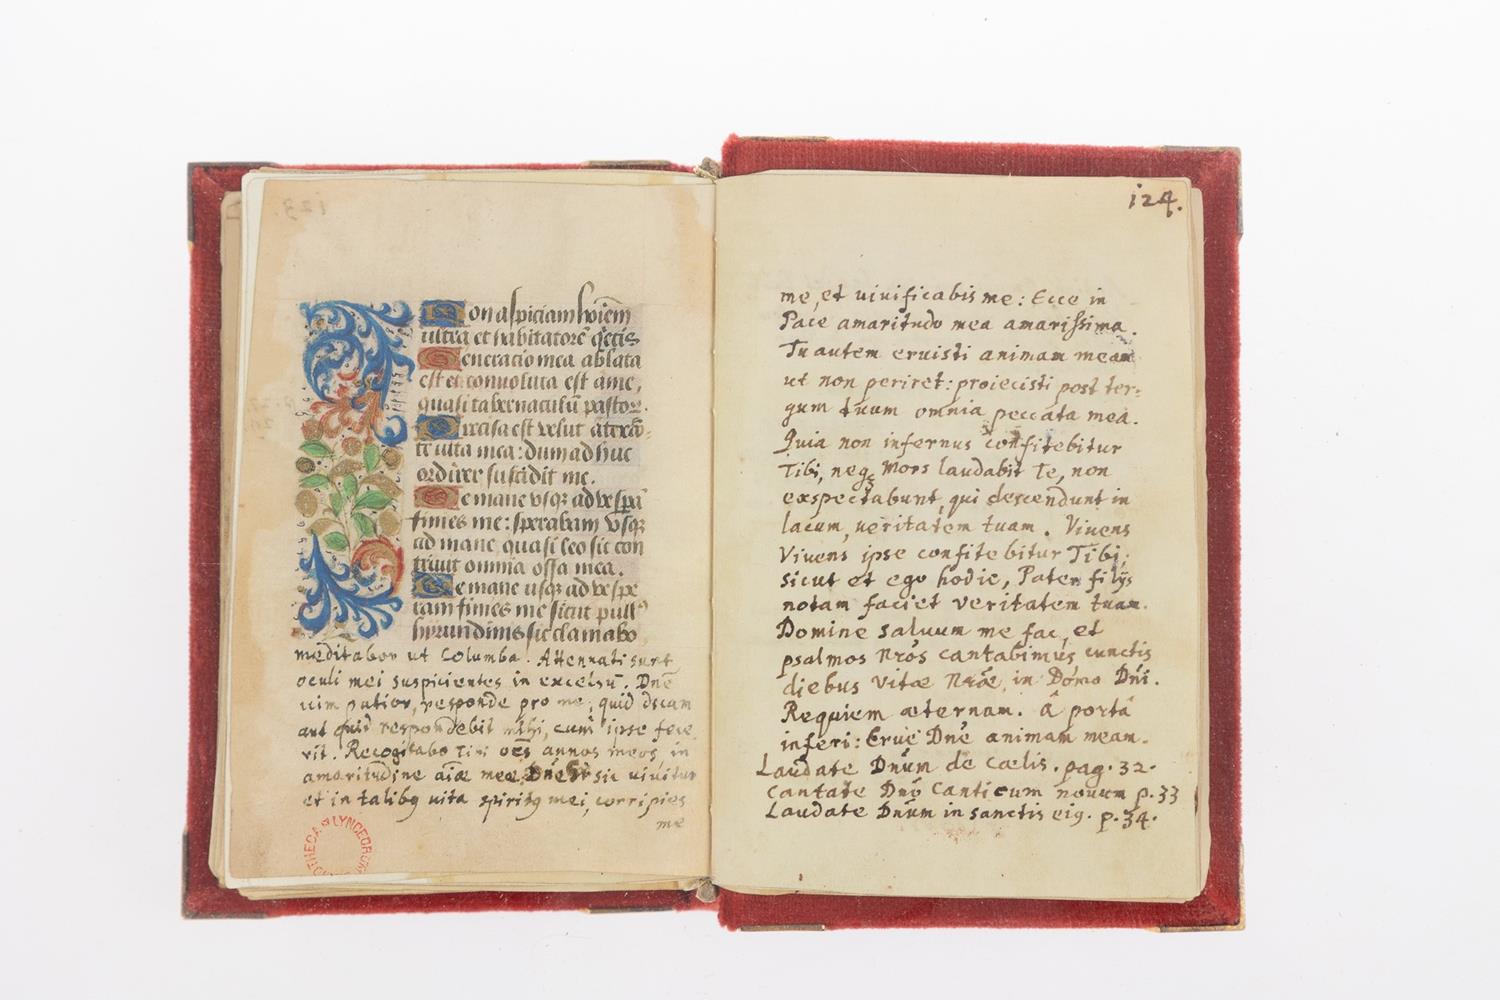 Non aspiciam hoiem̄
ultra et habitatorē q̄etis
Generatio mea ablata
est et convoluta est a me,
quasi tabernaculū pastor.
Precisa est velut a texē-
te vita mea: dum ad huc
ordirer succidit me.
De mane vsqꝫ ad vesꝑā
finies me: sperabam vsqꝫ
ad mane quasi leo sic con
triuit omnia ossa mea.
De mane usqꝫ ad vespe
ram finies me sicut pullꝰ
hyrundinis sic clamabo
meditabor ut Columba. Attenuati sunt
oculi mei suspicientes in excelsū. Dnē
uim patior, responde pro me, quid dicam
aut quid respondebit mihi, cum ipse fece
rit. Recogitabo Tibi oēs annos meos in
amaritudine aīæ meæ. Dnē si sic uiuitur
et in talibꝫ uita spiritꝫ mei, corripies
me
124.
me, et uiuificabis me: Ecce in
Pace amaritudo mea amarissima.
Tu autem eruisti animam meam
ut non periret: proiecisti post ter-
gum tuum omnia peccata mea.
Quia non infernus confitebitur
Tibi, neqꝫ Mors laudabit Te, non
exspectabunt, qui descendunt in
lacum, ueritatem tuam. Viuens
Viuens ipse confitebitur Tibi,
sicut et ego hodie, Pater filijs
notam faciet veritatem tuam.
Domine saluum me fac, et
psalmos Nrōs cantabimus cunctis
diebus Vitæ Nrǣ, in Domo Dn̄i.
Requiem æternam. â portâ
inferi: Erue Dnē animam meam.
Laudate Dn̄um de Cælis. pag. 32.
Cantate Dn̄o Canticum nouum p. 33
Laudate Dn̄um in sanctis eiꝫ. p. 34.